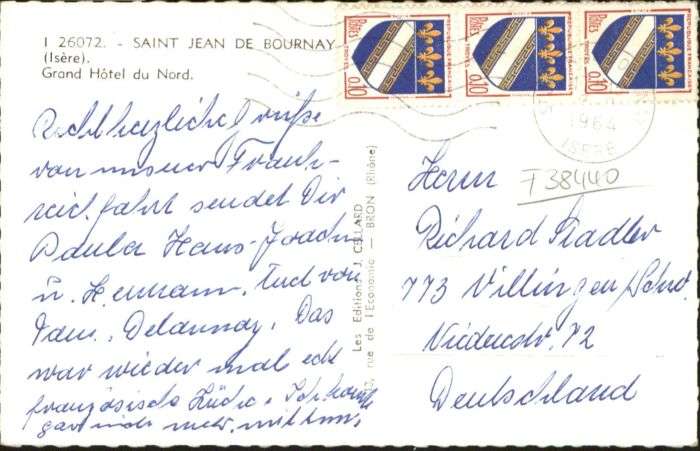 I 26072. - SAINT JEAN DE BOURNAY
(Isère).
Grand Hôtel du Nord.
Recht herzliche Grüße
von unserer Frank-
reichfahrt sendet Dir
Paula, Hans-Joachim
u. Hermann. Und von
Fam. Delaunay. Das
war wieder mal echt
französische Küche. Ich konnte
gar nicht mehr mittun.
Les Editions J. CELLARD
rue de l'Economie — BRON (Rhône)
POSTES
TROYES
0,10
REPUBLIQUE FRANCAISE
POSTES
TROYES
0,10
REPUBLIQUE FRANCAISE
POSTES
TROYES
0,10
REPUBLIQUE FRANCAISE
1964
ISERE
F38440
Herrn
Richard Stadler
773 Villingen/Schw.
Niederstr. 72
Deutschland